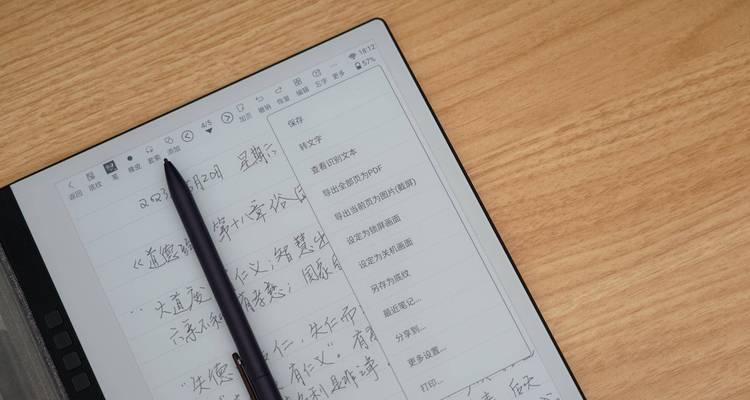 18:12
57%
返回 底纹 笔 橡皮 套索 添加 4/5 加页 撤销 恢复 编辑 忘字 更多
保存
转文字
查看识别文本
导出全部页为PDF
导出当前页为图片(截屏)
设定为锁屏画面
设定为关机画面
另存为底纹
最近笔记...
分享到...
更多设置...
打印...
2023 月20日 星期六
《道德 第十八章
大道废 仁义;智慧出
六亲不和 有孝慈;国家
"失德 仁,失仁而
有仁义"。有
是非
后天